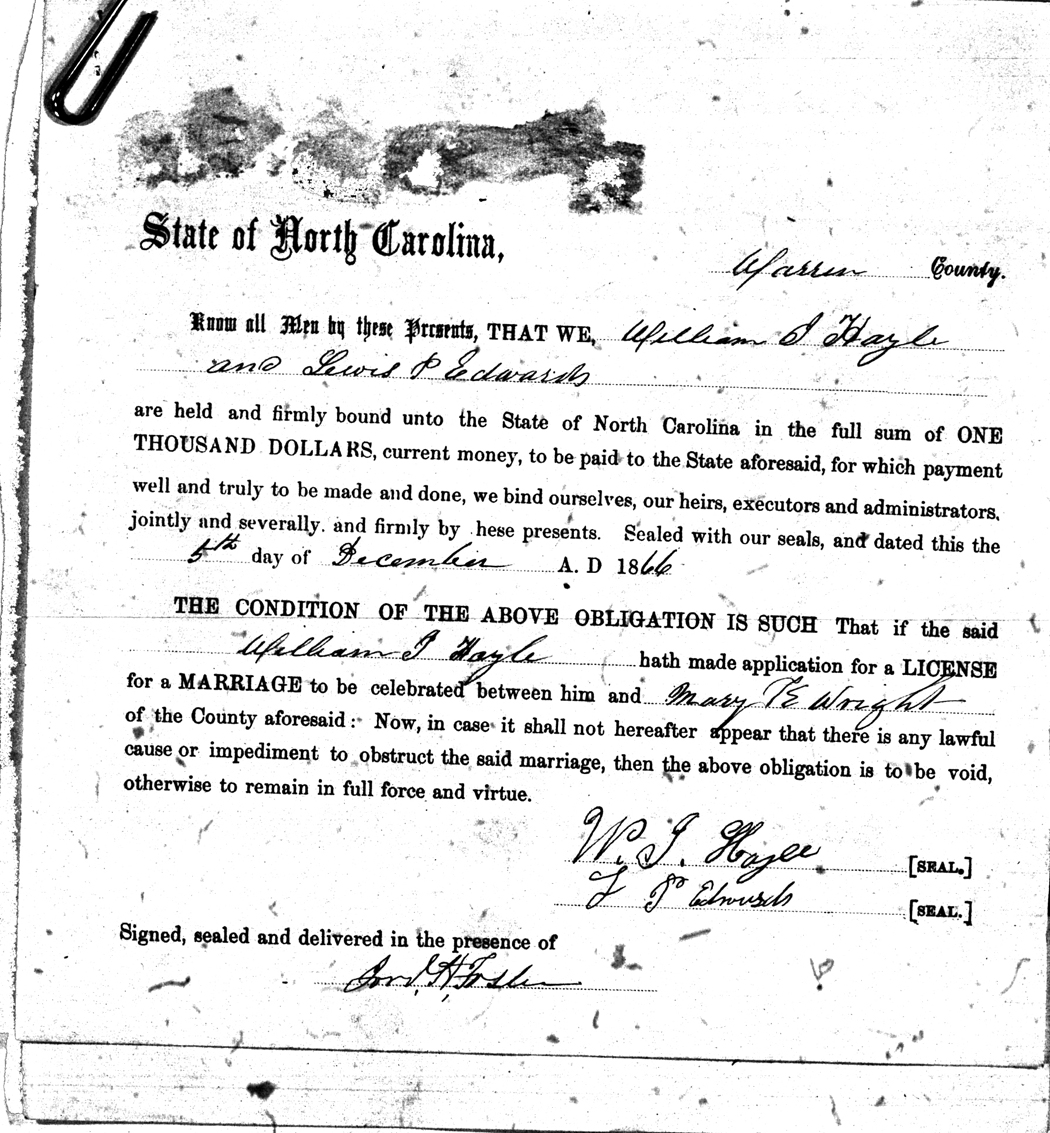 State of North Carolina,
Warren County.
Know all Men by these Presents, THAT WE, William J Hayle
and Lewis P Edwards
are held and firmly bound unto the State of North Carolina in the full sum of ONE
THOUSAND DOLLARS, current money, to be paid to the State aforesaid, for which payment
well and truly to be made and done, we bind ourselves, our heirs, executors and administrators,
jointly and severally. and firmly by hese presents. Sealed with our seals, and dated this the
5th day of December A. D 1866
THE CONDITION OF THE ABOVE OBLIGATION IS SUCH That if the said
William J Hayle hath made application for a LICENSE
for a MARRIAGE to be celebrated between him and Mary E Wright
of the County aforesaid: Now, in case it shall not hereafter appear that there is any lawful
cause or impediment to obstruct the said marriage, then the above obligation is to be void,
otherwise to remain in full force and virtue.
W. J. Hayle [SEAL.]
L P Edwards [SEAL.]
Signed, sealed and delivered in the presence of
H, Foster